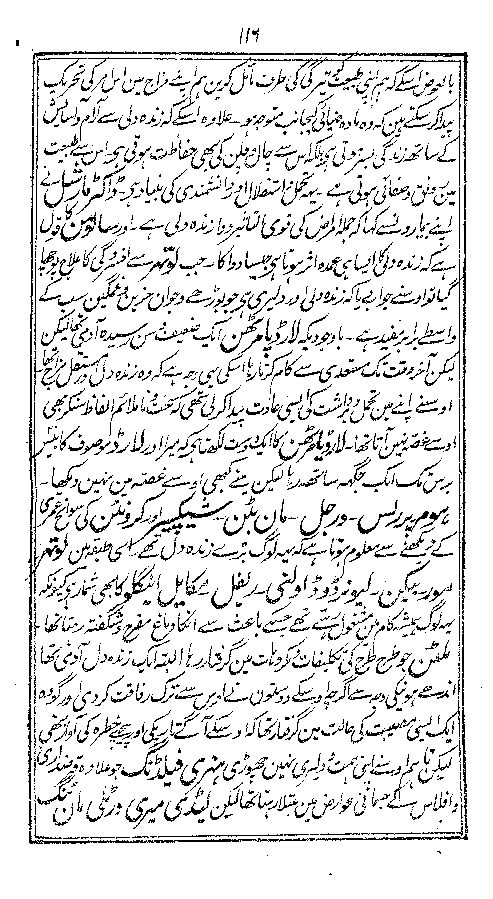 ۱۱۶
بالعوض اسکے کہ ہم اپنی طبیعت کو تیرگی کی طرف مائل کرین ہم اپنے مزاج مین اس امر کی تحریک
پیدا کر سکتے ہین کہ وہ مادہ ضیائی کیجانب متوجہ ہو۔ علاوہ اسکے کہ زندہ دلی سے آرام و آسایش
کے ساتھ زندگی بسر ہوتی ہے بلکہ اس سے چال چلن کی بھی حفاظت ہوتی ہے اس سے طبیعت
مین رونق و صفائی ہوتی ہے۔ یہہ تحمل استقلال اور دانشمندی کی بنیاد ہے۔ ڈاکٹر مارشل نے
اپنے بیمارون سے کہا کہ جملہ امراض کی قوی التاثیر دوا زندہ دلی ہے۔ اور سالومن کا قول
ہے کہ زندہ دلی کا ایسا ہی عمدہ اثر ہوتا ہے جیسا دوا کا۔ جب لوتھر سے افسردگی کا علاج پوچھا
گیا تو اوسنے جواب دیا کہ زندہ دلی اور دلیری ہے جو بوڑھے و جوان حزین و غمگین سب کے
واسطے برابر مفید ہے۔ باوجودیکہ لارڈ پامرسٹن ایک ضعیف سن رسیدہ آدمی تھا لیکن
لیکن آخر وقت تک مستعدی سے کام کرتا رہا اسکی یہی وجہ ہے کہ وہ زندہ دل اور مستقل مزاج تھا
اوسنے اپنے مین تحمل و برداشت کی ایسی عادت پیدا کر لی تھی کہ سخت و ناملائم الفاظ سنکر بھی
اوسے غصہ نہین آتا تھا۔ لارڈ پامرسٹن کا ایک دوست لکھتا ہے کہ میرا اور لارڈ موصوف کا بیس
برس تک ایک جگہہ ساتھ رہا لیکن مینے کبھی اوسے غصہ مین نہین دیکھا۔
ہومر ہوریس۔ ورجل۔ مان ٹین۔ شیکسپیر اور سرونٹس کی سوانح عمری
کے دیکھنے سے معلوم ہوتا ہے کہ یہہ لوگ بڑے زندہ دل تھے۔ اسی طبقہ مین لوتھر
مور۔ بیکن۔ لیونرڈو ڈاونسی۔ ریفل و مکایل انیگلو کا بھی شمار ہے کیونکہ
یہہ لوگ ہمیشہ کام مین مشغول رہتے تھے جسکے باعث سے انکا دماغ مفرح و شگفتہ رہتا تھا۔
ملٹن جو طرح طرح کی تکلیفات و مکروہات مین گرفتار رہا البتہ ایک زندہ دل آدمی تھا
اندھے ہونیکی وجہ سے اگرچہ اوسکے دوستون نے اوس سے ترک رفاقت کر دی اور گو وہ
ایک ایسی مصیبت کی حالت مین گرفتار تھا کہ اوسکے آگے تاریکی اور پیچھے خطرہ کی آواز تھی
لیکن تاہم اوسنے اپنی ہمت و دلیری نہین چھوڑی ہنری فیلڈنگ جو علاوہ قرضداری
و افلاس کے جسمانی عوارض مین مبتلا رہتا تھا لیکن لیڈی میری ورٹلی مان ٹیگ